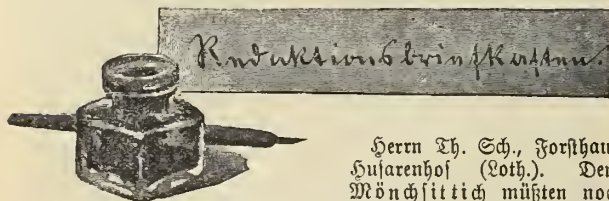 Redaktionsbriefkasten.
Herrn Th. Sch., Forsthau
Husarenhof (Loth.). Den
Mönchsittich müßten noc